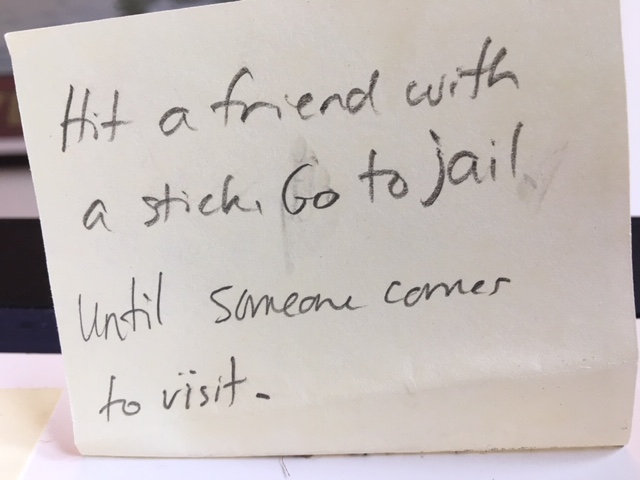 Hit a friend with
a stick. Go to jail
Until someone comes
to visit.